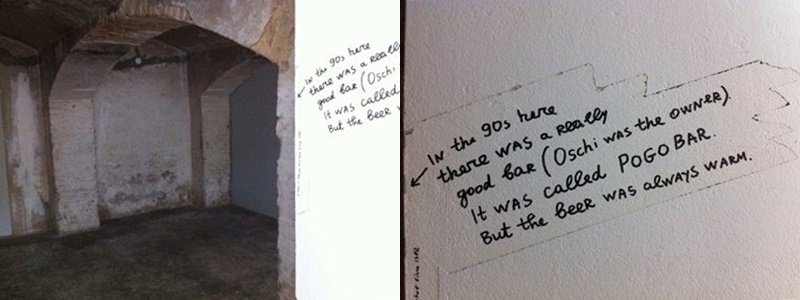 In the 90s here
there was a Really
good bar (Oschi
It was called
But the beer
In the 90s here
there was a Really
good bar (Oschi was the owner).
It was called POGO BAR.
But the beer was always warm.